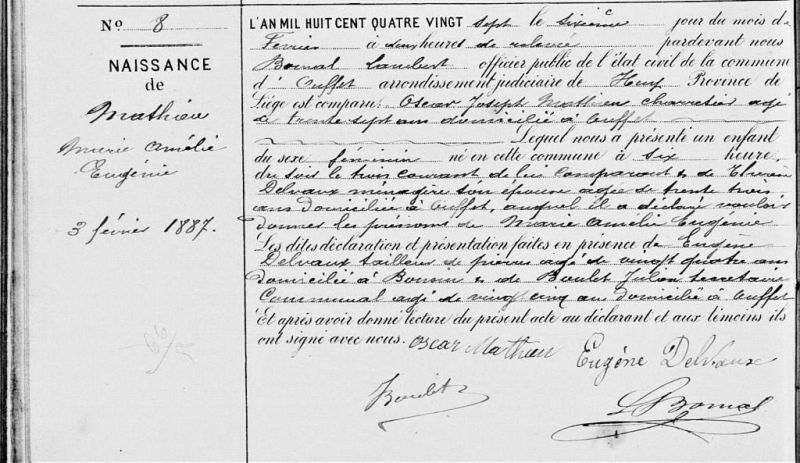 N° 8
NAISSANCE
de
Mathieu
Marie Amélie
Eugénie
3 février 1887.
L'AN MIL HUIT CENT QUATRE VINGT sept le sixième jour du mois de
Février à deux heures de relevée pardevant nous
Bomal Lambert officier public de l'état civil de la commune
d' Ouffet arrondissement judiciaire de Huy Province de
Liége est comparu: Oscar Joseph Mathieu charretier agé
de trente sept ans domicilié à Ouffet
Lequel nous a présenté un enfant
du sexe féminin né en cette commune à six heure
du soir le trois courant de lui comparant & de
Delvaux ménagère son épouse agée de trente trois
ans domiciliée à Ouffet, auquel il a déclaré vouloir
donner les prénoms de Marie Amélie Eugénie
Les dites déclaration et présentation faites en présence de Eugène
Delvaux tailleur de pierres agé de vingt quatre ans
domicilié à & de Boulet Julien secrétaire
Communal agé de vingt cinq ans domicilié à Ouffet
Et après avoir donné lecture du présent acte au déclarant et aux témoins ils
ont signé avec nous. Oscar Mathieu
Eugène Delvaux
Boulet
L Bomal